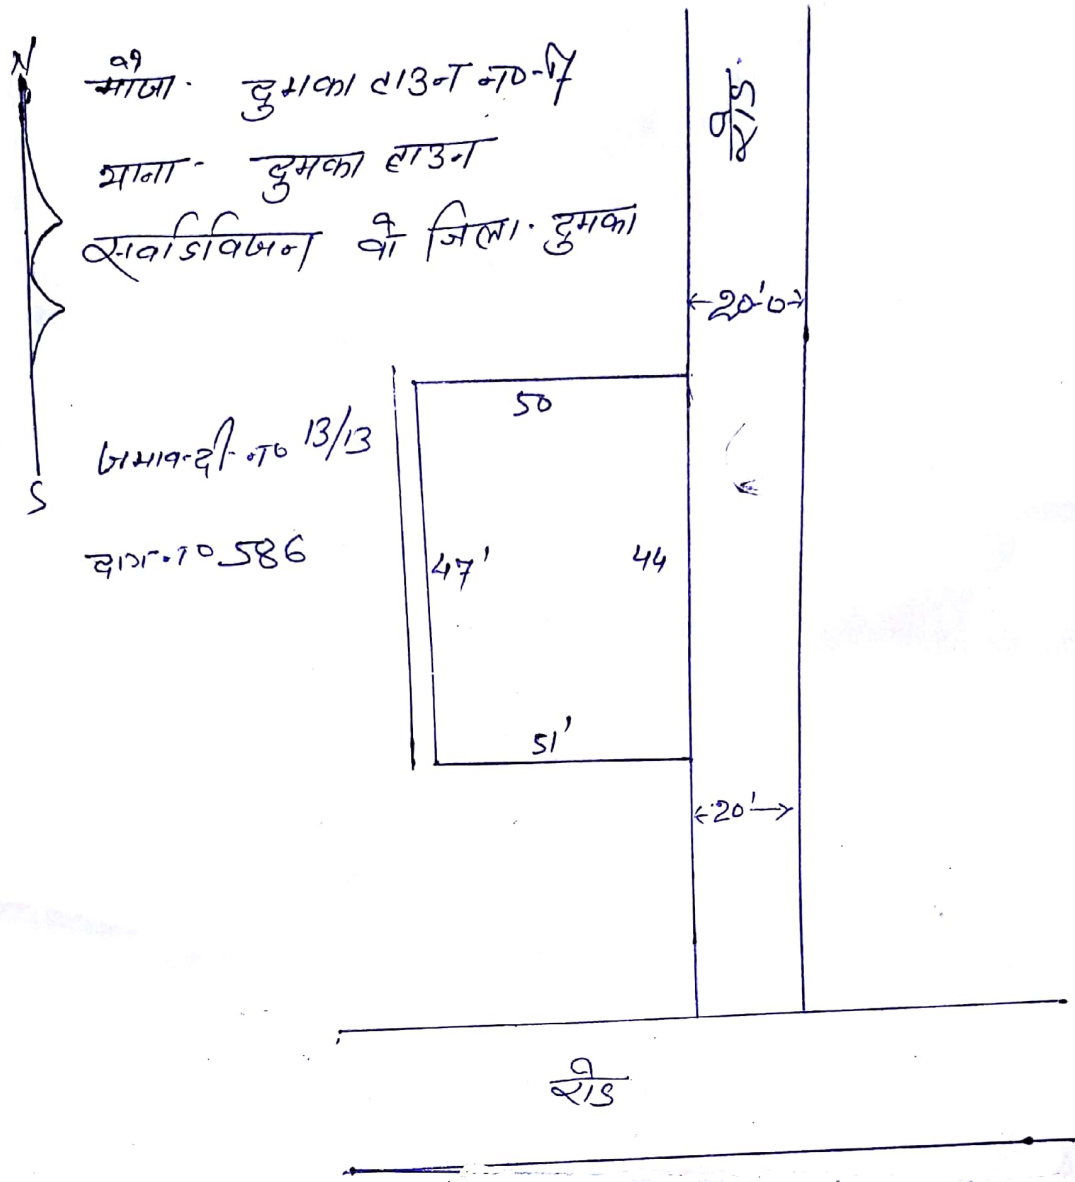 N
मौजा- दुमका टाउन नं०-17
थाना- दुमका टाउन
सवडिविजन वो जिला- दुमका
रोड
20'0
50
जमाबन्दी नं० 13/13
S
दाग नं० 586
47'
44
51'
20'
रोड